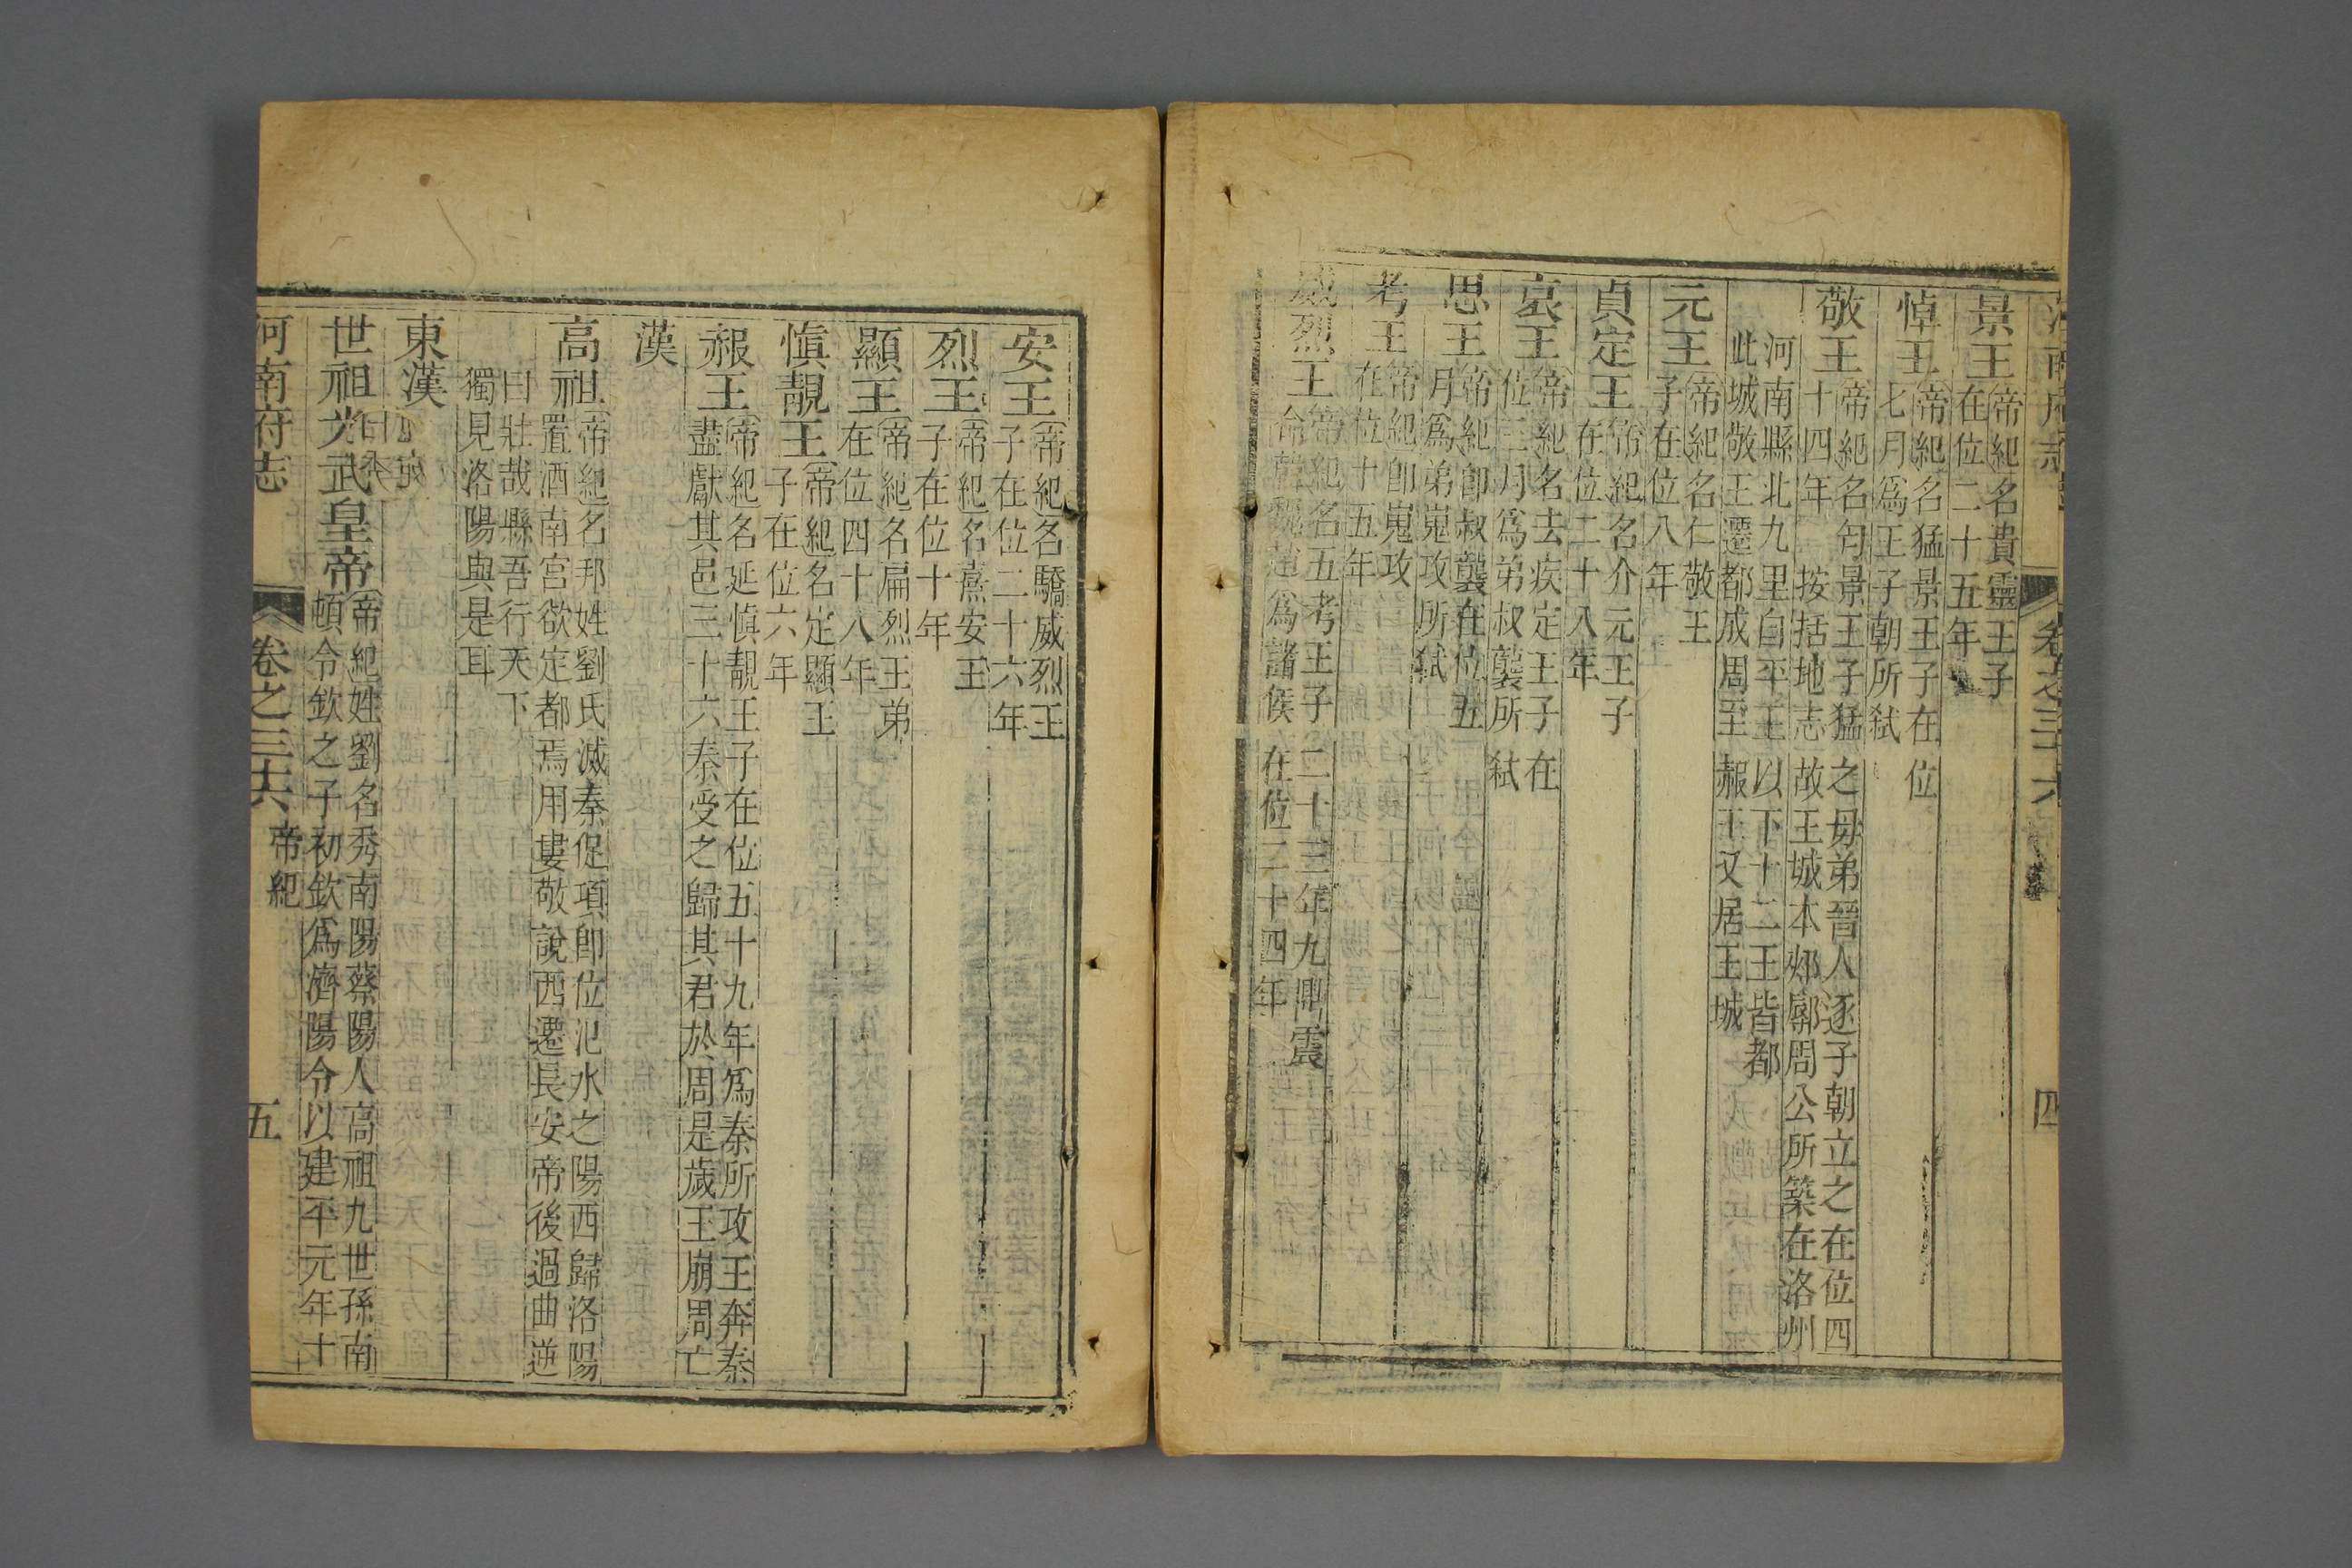 河南府志 卷之三十六 四
景王
帝紀名貴靈王子
在位二十五年
悼王
帝紀名猛景王子在位
七月爲王子朝所弑
敬王
帝紀名匄景王子猛之毋弟晉人逐子朝立之在位四
十四年 按括地志故王城本郟鄏周公所築在洛州
河南縣北九里自平王以下十二王皆都
此城敬王遷都成周至赧王又居王城
元王
帝紀名仁敬王
子在位八年
貞定王
帝紀名介元王子
在位二十八年
哀王
帝紀名去疾定王子在
位三月爲弟叔襲所弑
思王
帝紀卽叔襲在位五
月爲弟嵬攻所弑
考王
帝紀卽嵬攻
在位十五年
威烈王
帝紀名五考王子二十三年九鼎震
命韓魏趙爲諸侯在位二十四年
安王
帝紀名驕威烈王
子在位二十六年
烈王
帝紀名熹安王
子在位十年
顯王
帝紀名扁烈王弟
在位四十八年
愼靚王
帝紀名定顯王
子在位六年
赧王
帝紀名延愼靚王子在位五十九年爲秦所攻王奔秦
盡獻其邑三十六秦受之歸其君於周是歲王崩周亡
漢
高祖
帝紀名邦姓劉氏滅秦促項卽位氾水之陽西歸洛陽
置酒南宮欲定都焉用婁敬說西遷長安帝後過曲逆
曰壯哉縣吾行天下
獨見洛陽與是耳
東漢
世祖光武皇帝
帝紀姓劉名秀南陽蔡陽人高祖九世孫南
頓令欽之子初欽爲濟陽令以建平元年十
河南府志 卷之三十六 帝紀 五